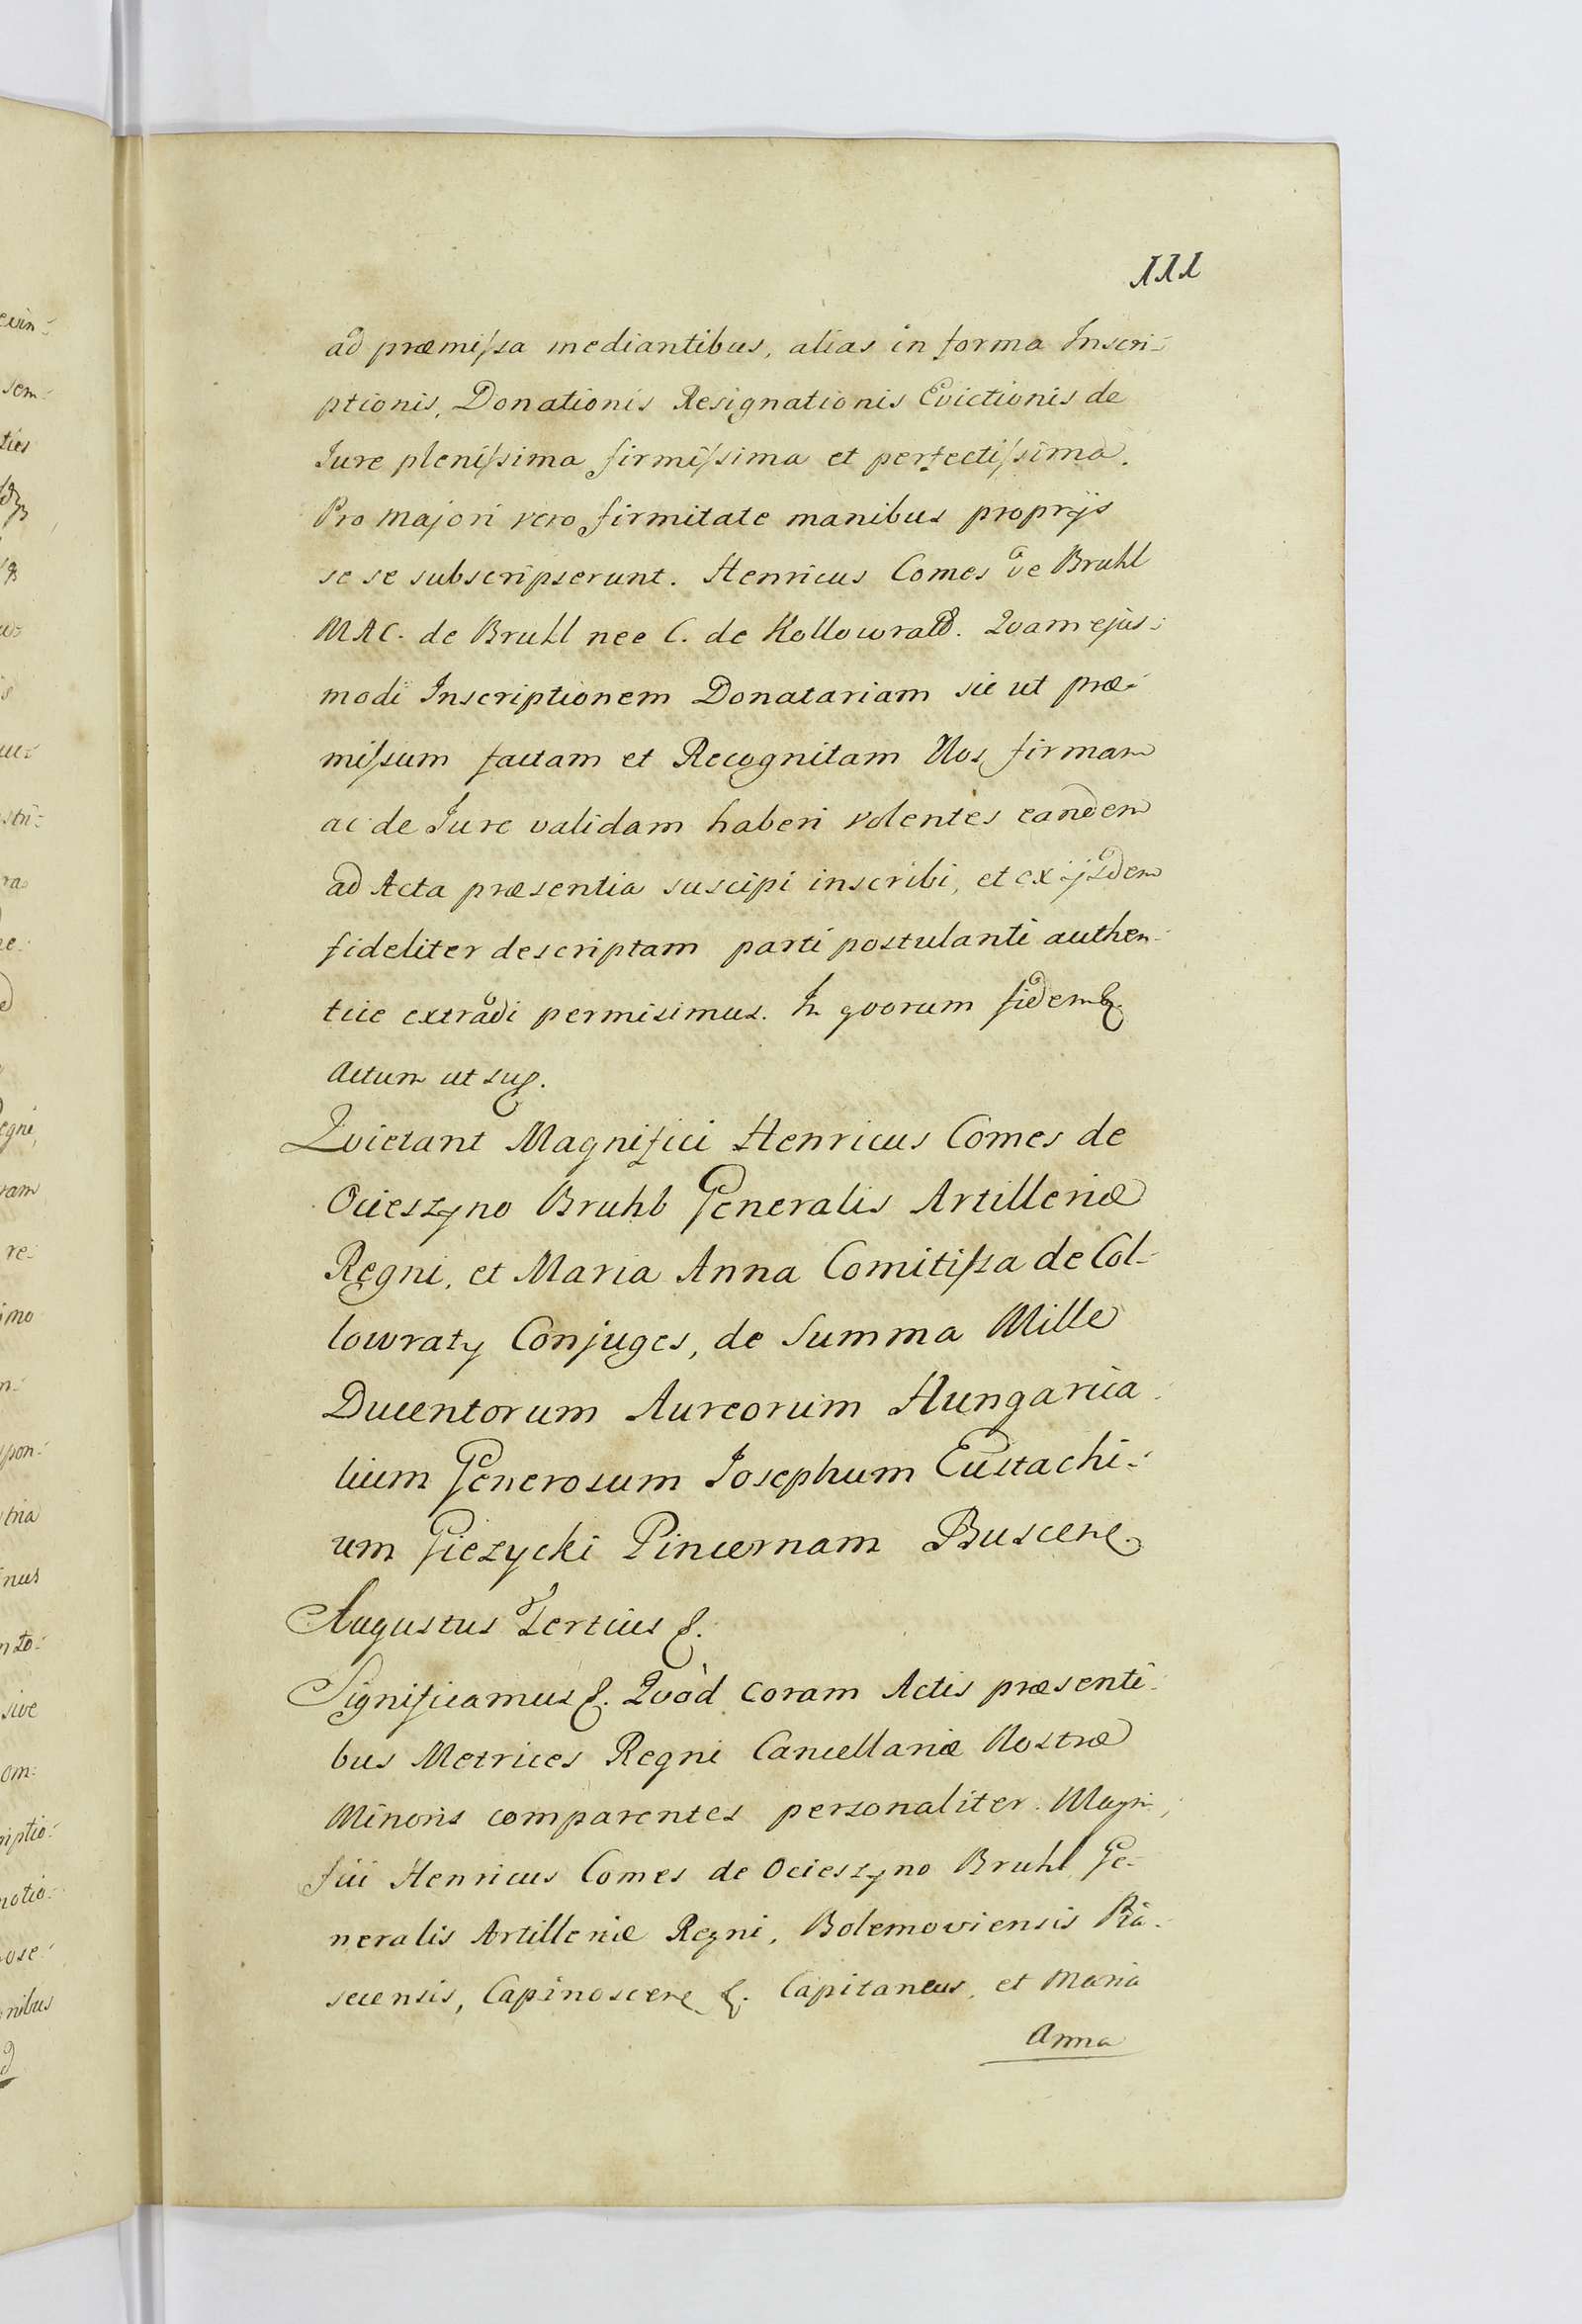 111
ad præmissa mediantibus, alias in forma Inscri-
ptionis, Donationis Resignationis Evictionis de
Jure plenissima firmissima et perfectissima.
Pro majori vero firmitate manibus proprijs
se se subscripserunt. Henricus Comes de Bruhl
MAC. de Bruhl nee C. de Kollowrald. Qvam ejus-
modi Inscriptionem Donatariam sic ut præ-
missum factam et Recognitam Nos firmam
ac de Jure validam haberi volentes eandem
ad Acta præsentia suscipi inscribi, et ex ijsdem
fideliter descriptam parti postulanti authen-
tice extradi permisimus. In qvorum fidem &.
Actum ut sup.
Qvietant Magnifici Henricus Comes de
Ocieszyno Bruhl Generalis Artilleriæ
Regni, et Maria Anna Comitissa de Col-
lowraty Conjuges, de Summa Mille
Ducentorum Aureorum Hungarica-
lium Generosum Josephum Eustachi-
um Giezycki Pincernam Buscens.
Augustus Tertius &.
Significamus &. Qvòd coram Actis præsenti-
bus Metrices Regni Cancellariæ Nostræ
Minoris comparentes personaliter Magni-
fici Henricus Comes de Ocieszyno Bruhl Ge-
neralis Artilleriæ Regni, Bolemoviensis Pia-
secensis, Capinoscens &. Capitaneus, et Maria
Anna
evin-
sem-
ties
ue-
stri-
ra
egni,
ram
re-
imo
n-
spon-
tria
nus
nto-
sive
om-
riptio-
notio-
ose-
nibus